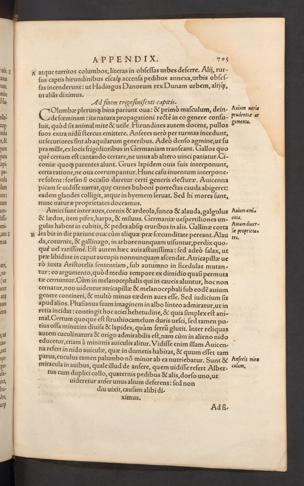 APPENDIX. 705
atque turritos columbos, literas in obsessas urbes deferre. Alij, rur-
sus captis hirundinibus accensa pedibus annexa, urbis obses-
sas incenderunt: ut Hadingus Danorum rex Dunam urbem, alijque,
ut alias diximus.
Ad finem trigesimsexti capitis.
Columbæ plerumque bina pariunt oua: & primò masculum, dein-
de fœminam: ita natura propagationi rectè in eo genere consu-
luit, quòd sit animal mite & utile. Hirundines autem docent, pullos
suos extra nidũ stercus emittere. Anseres uerò per turmas incedunt,
ut securiores sint ab aquilarum generibus. Adeò
præ millè, ex locis frigidioribus in Germaniam transeant. Gallos quo
què certum est cantando certare, ne unus ab altero uinci patiatur. Ci-
coniæ quoque parentes alunt. Grues lapidem ouis suis interponunt,
certa ratione, ne oua corrumpantur. Hunc casu inuentum interpone-
re solent: forsan & occasio daretur certi generis electuræ. Auicenna
picam se uidisse narrat, quæ carnes buboni porrectas cauda abigeret:
eadem glandes colligit, atque in hyemem seruat. Sed hi mores sunt,
nunc naturæ proprietates doceamus.
Auium uaria
prudentia ac
generatio.
Amici sunt inter aues, cornix & ardeola, iunco & alauda, galgulus
& lædos, item psfex, harpa, & miluus. Germaniæ uespertiliones an-
gulas habent in cubitis, & pedes absque cruribus in alis. Gallinæ
lea bis in die pariunt oua: cùm aliquæ præ fœcunditate pereant. Alau-
da, coturnix, & gallinago, in arbore nunquam uisuntur, perdix quo-
què uel rarissimè. Est autem hæc auis astutissima: sed adeò salax, ut
præ libidine in caput aucupis nonnunquam ascendat. Atricapillæ ue
rò iuxta Aristotelis sententiam, sub autumno in ficedulas mutan-
tur: eo argumento, quòd medio tempore ex dimidio quasi permuta
tæ cernantur. Cùm in melanocephalis qui in caueis aluntur, hoc non
cernatur, non uidentur atricapillæ & melanocephali sub eodẽ auium
genere contineri, & multò minus eædem aues esse. Sed iudicium sit
apud alios. Phasianus suam imaginem in albo linteo admiratur, ut in
retia incidat: contingit hoc aciei hebetudine, & quia simplex est ani-
mal. Certum quoque est struthiocamelum duris uesci, sed tamen po-
tius ossa minutim diuisa & lapides, quàm ferrũ glutit. Inter reliquas
autem cuculi natura & origo admirabilis est, nam cùm in alieno nido
educetur, etiam à minimis auiculis alitur. Vidisse enim illam Auicen-
na refert in nido auiculæ, quæ in dumetis habitat, & quum esset tam
parua, cuculus tamen palumbo nõ minor ab ea nutriebatur. Sunt &
miracula in auibus, quale illud de ansere, quem uidisse refert Alber-
tus cum duplici collo, quaternis pedibus & alis, dorso uno, ut
uideretur anser unus alium deferens: sed non
diu uixit, causam alibi di-
ximus.
Auium ami-
citia.
Auium diuer-
sæ proprieta-
tes.
Anseris mira
culum.
Ad fi-